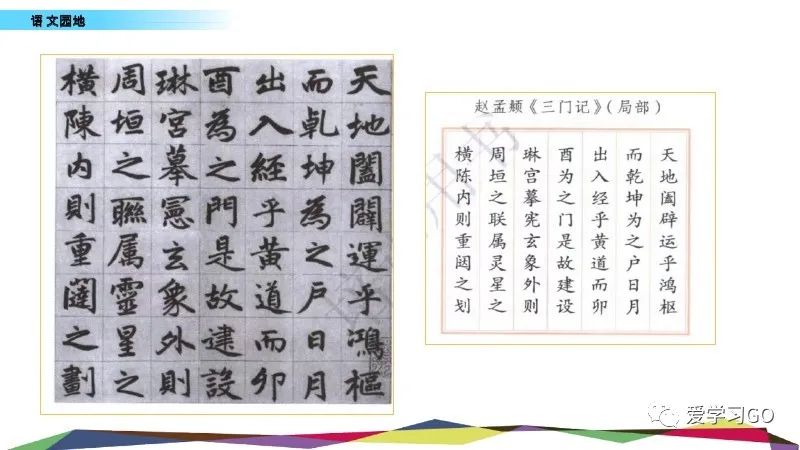 语文园地
天地闔闢運乎鴻樞
而乹坤為之戶日月
出入經乎黃道而卯
酉為之門是故建設
琳宮摹憲玄象外則
周垣之聯属靈星之
橫陳內則重闥之劃
赵孟頫《三门记》(局部)
天地阖辟运乎鸿枢
而乾坤为之户日月
出入经乎黄道而卯
酉为之门是故建设
琳宫摹宪玄象外则
周垣之联属灵星之
横陈内则重闼之划
爱学习GO